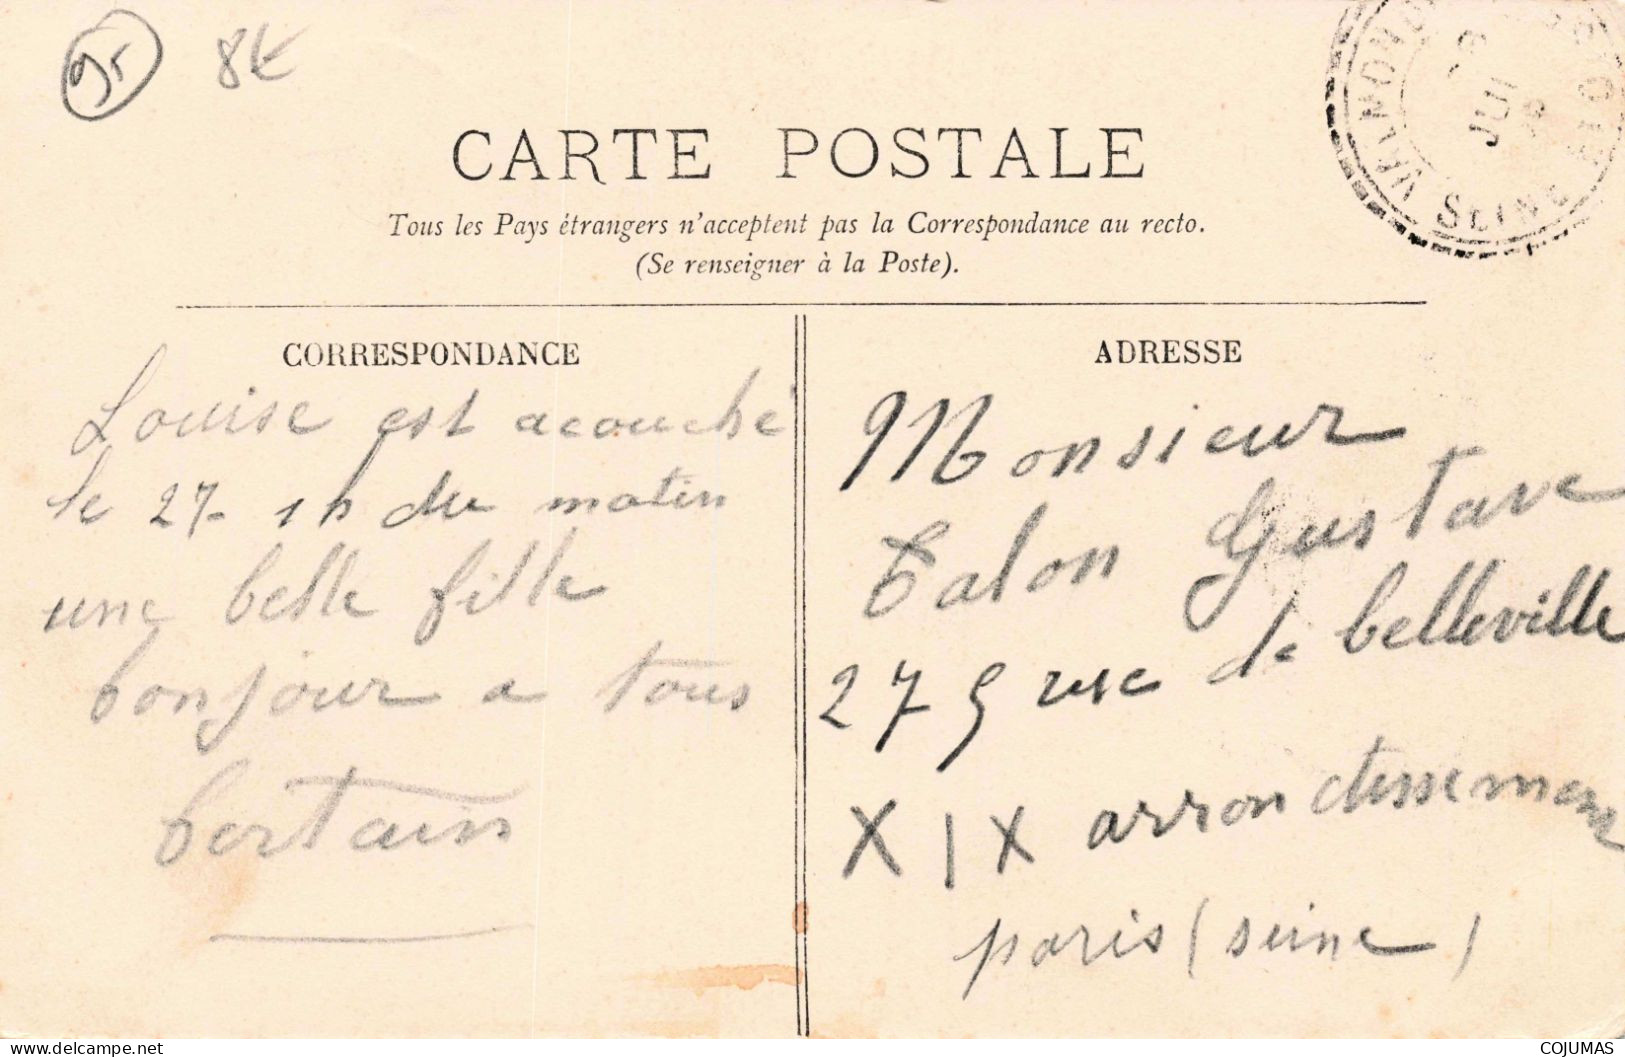 95 8€
VALMONDOIS SEINE ET OISE
JUI
CARTE POSTALE
Tous les Pays étrangers n'acceptent pas la Correspondance au recto.
(Se renseigner à la Poste).
CORRESPONDANCE
Louise est acouché
le 27- 1h du matin
une belle fille
bonjour a tous
Certain
ADRESSE
Monsieur
Talon Gustave
275 rue de belleville
XIX arrondissement
paris (seine)
www.delcampe.net
COJUMAS